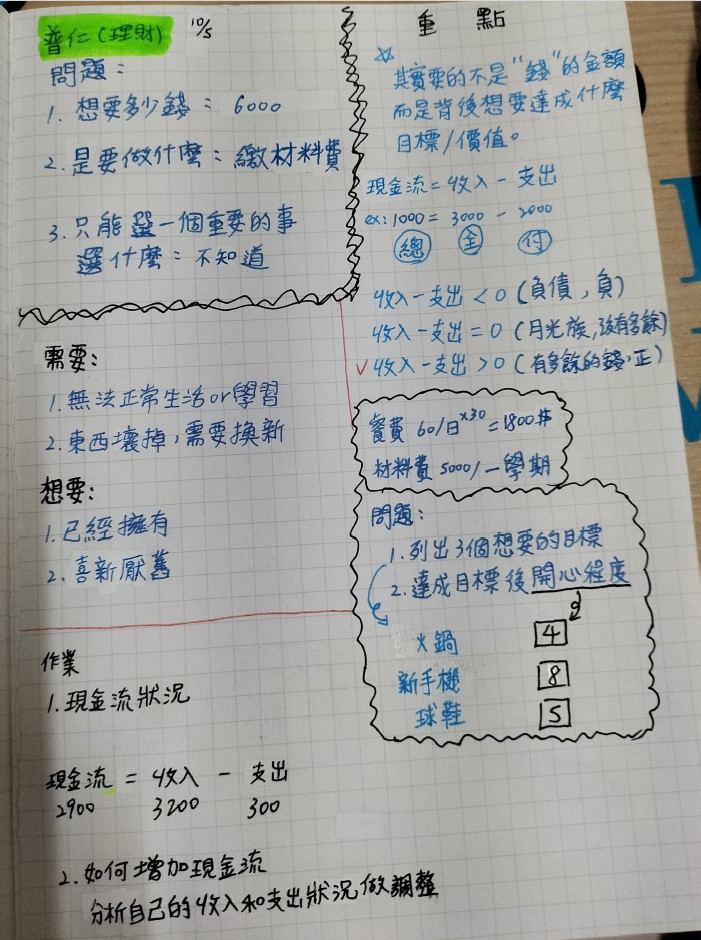 普仁(理財) 10/5
問題:
1. 想要多少錢: 6000
2. 是要做什麼: 繳材料費
3. 只能選一個重要的事
選什麼: 不知道
需要:
1. 無法正常生活or學習
2. 東西壞掉,需要換新
想要:
1. 已經擁有
2. 喜新厭舊
作業
1. 現金流狀況
現金流 = 收入 - 支出
2900 3200 300
2. 如何增加現金流
分析自己的收入和支出狀況做調整
重 點
☆ 其實要的不是"錢"的金額
而是背後想要達成什麼
目標/價值。
現金流=收入-支出
ex: 1000 = 3000 - 2000
總 全 付
收入-支出<0 (負債,負)
收入-支出=0 (月光族,沒有多餘)
✓收入-支出>0 (有多餘的錢,正)
餐費 60/日×30=1800#
材料費 5000/一學期
問題:
1. 列出3個想要的目標
2. 達成目標後開心程度
火鍋 4
新手機 8
球鞋 5